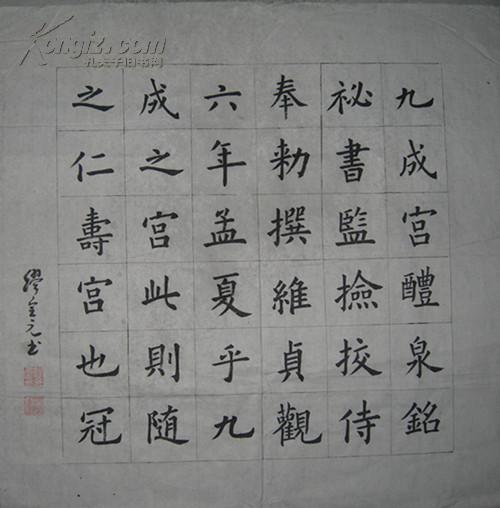 九成宮醴泉銘
祕書監撿挍侍
奉勅撰維貞觀
六年孟夏乎九
成之宮此則随
之仁壽宮也冠
繆金元书
Kongfz.com
孔夫子旧书网